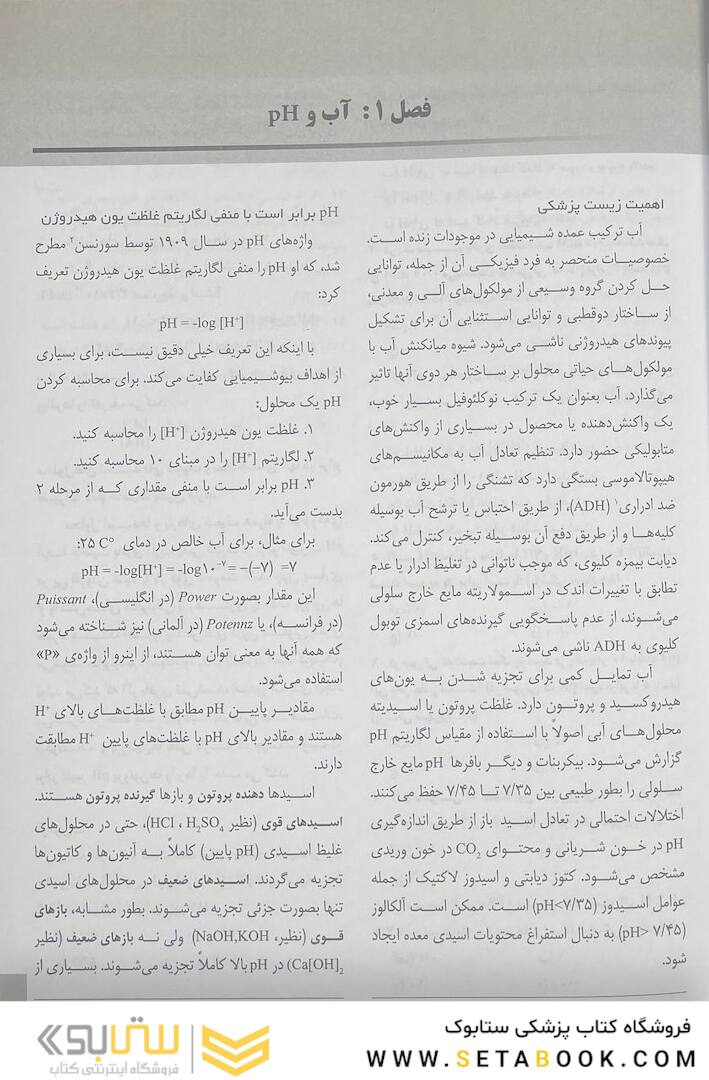 فصل ۱: آب و pH
اهمیت زیست پزشکی
آب ترکیب عمده شیمیایی در موجودات زنده است.
خصوصیات منحصر به فرد فیزیکی آن از جمله، توانایی
حل کردن گروه وسیعی از مولکول‌های آلی و معدنی،
از ساختار دوقطبی و توانایی استثنایی آن برای تشکیل
پیوندهای هیدروژنی ناشی می‌شود. شیوه میانکنش آب با
مولکول‌های حیاتی محلول بر ساختار هر دوی آنها تاثیر
می‌گذارد. آب بعنوان یک ترکیب نوکلئوفیل بسیار خوب،
یک واکنش‌دهنده یا محصول در بسیاری از واکنش‌های
متابولیکی حضور دارد. تنظیم تعادل آب به مکانیسم‌های
هیپوتالاموسی بستگی دارد که تشنگی را از طریق هورمون
ضد ادراری۱ (ADH)، از طریق احتباس یا ترشح آب بوسیله
کلیه‌ها و از طریق دفع آن بوسیله تبخیر، کنترل می‌کند.
دیابت بیمزه کلیوی، که موجب ناتوانی در تغلیظ ادرار یا عدم
تطابق با تغییرات اندک در اسمولاریته مایع خارج سلولی
می‌شوند، از عدم پاسخگویی گیرنده‌های اسمزی توبول
کلیوی به ADH ناشی می‌شوند.
آب تمایل کمی برای تجزیه شدن به یون‌های
هیدروکسید و پروتون دارد. غلظت پروتون یا اسیدیته
محلول‌های آبی اصولاً با استفاده از مقیاس لگاریتم pH
گزارش می‌شود. بیکربنات و دیگر بافرها pH مایع خارج
سلولی را بطور طبیعی بین ۷/۳۵ تا ۷/۴۵ حفظ می‌کنند.
اختلالات احتمالی در تعادل اسید باز از طریق اندازه‌گیری
pH در خون شریانی و محتوای CO₂ در خون وریدی
مشخص می‌شود. کتوز دیابتی و اسیدوز لاکتیک از جمله
عوامل اسیدوز (pH<۷/۳۵) است. ممکن است آلکالوز
(pH> ۷/۴۵) به دنبال استفراغ محتویات اسیدی معده ایجاد
شود.
pH برابر است با منفی لگاریتم غلظت یون هیدروژن
واژه‌های pH در سال ۱۹۰۹ توسط سورنسن۲ مطرح
شد، که او pH را منفی لگاریتم غلظت یون هیدروژن تعریف
کرد:
pH = -log [H⁺]
با اینکه این تعریف خیلی دقیق نیست، برای بسیاری
از اهداف بیوشیمیایی کفایت می‌کند. برای محاسبه کردن
pH یک محلول:
۱. غلظت یون هیدروژن [H⁺] را محاسبه کنید.
۲. لگاریتم [H⁺] را در مبنای ۱۰ محاسبه کنید.
۳. pH برابر است با منفی مقداری که از مرحله ۲
بدست می‌آید.
برای مثال، برای آب خالص در دمای ۲۵ C°:
pH = -log[H⁺] = -log۱۰⁻⁷ = −(−۷) =۷
این مقدار بصورت Power (در انگلیسی)، Puissant
(در فرانسه)، یا Potennz (در آلمانی) نیز شناخته می‌شود
که همه آنها به معنی توان هستند، از اینرو از واژه‌ی «P»
استفاده می‌شود.
مقادیر پایین pH مطابق با غلظت‌های بالای H⁺
هستند و مقادیر بالای pH با غلظت‌های پایین H⁺ مطابقت
دارند.
اسیدها دهنده پروتون و بازها گیرنده پروتون هستند.
اسیدهای قوی (نظیر HCl ، H₂SO₄)، حتی در محلول‌های
غلیظ اسیدی (pH پایین) کاملاً به آنیون‌ها و کاتیون‌ها
تجزیه می‌گردند. اسیدهای ضعیف در محلول‌های اسیدی
تنها بصورت جزئی تجزیه می‌شوند. بطور مشابه، بازهای
قوی (نظیر، NaOH,KOH) ولی نه بازهای ضعیف (نظیر
Ca[OH]₂) در pH بالا کاملاً تجزیه می‌شوند. بسیاری از
فروشگاه کتاب پزشکی ستابوک
WWW.SETABOOK.COM
ستابوک
فروشگاه اینترنتی کتاب